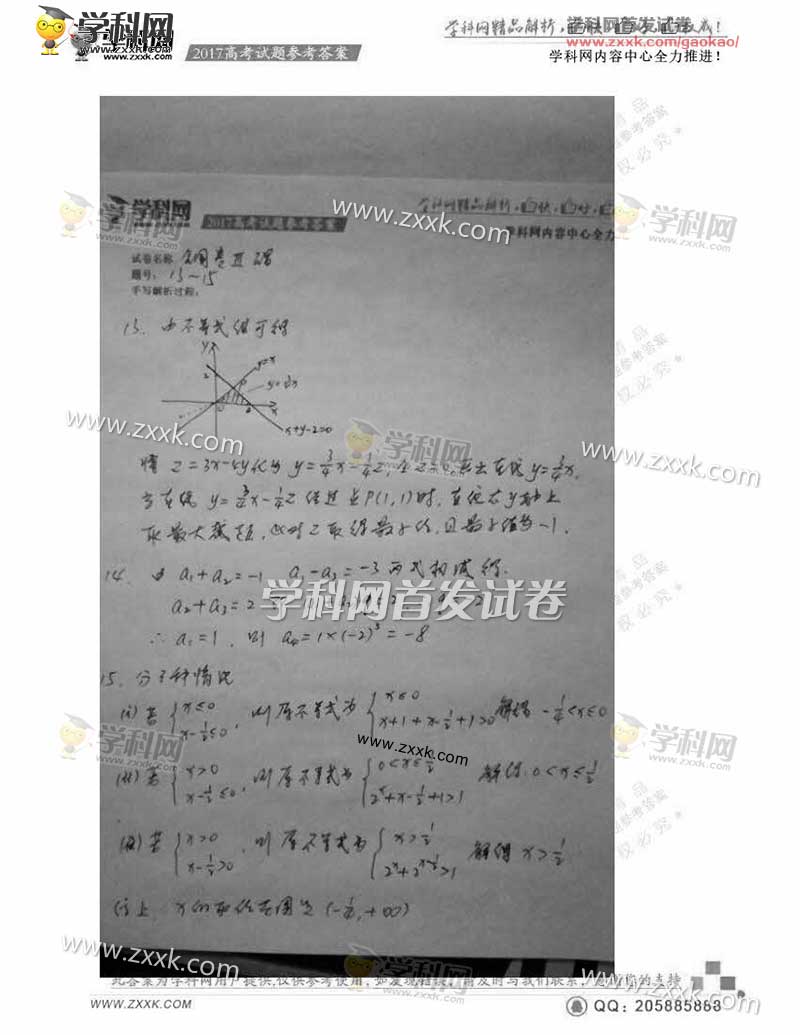 学科网
www.zxxk.com
2017高考试题参考答案
学科网首发试卷
www.zxxk.com/gaokao/
学科网内容中心全力推进！
学科网
2017高考试题参考答案
www.zxxk.com
学科网内容中心全力
试卷名称
题号： 13~15
手写解析过程：
13. 由不等式组可得
y
y=x
2
x
x+y-2=0
www.zxxk.com
学科网
z=3x-4y化为 y=3/4x-1/4z, 直线y=3/4x,
当直线 y=3/4x-1/4z 经过点P(1,1)时, 直线在y轴上
取最大截距, 此时z取得最小值, 且最小值为-1.
14. 由 a₁+a₂=-1 a₁-a₃=-3 两式相减得
a₂+a₃=2
学科网首发试卷
∴ a₁=1. 则 a₄=1×(-2)³=-8
15. 分三种情况
(i) 若 {x≤0 x-1/2≤0, 则原不等式为 {x≤0 x+1+x-1/2+1>0 解得 -1/4<x≤0
www.zxxk.com
若 {x>0 x-1/2≤0, 则原不等式为 {0<x≤1/2 2ˣ+x-1/2+1>1 解得 0<x≤1/2
若 {x>0 x-1/2>0, 则原不等式为 {x>1/2 2ˣ+2^(x-1/2)>1 解得 x>1/2
综上 x的取值范围是 (-1/4,+∞)
www.zxxk.com
此答案为学科网用户提供,仅供参考使用,如发现错误,请及时与我们联系,
www.zxxk.com
QQ: 205885863